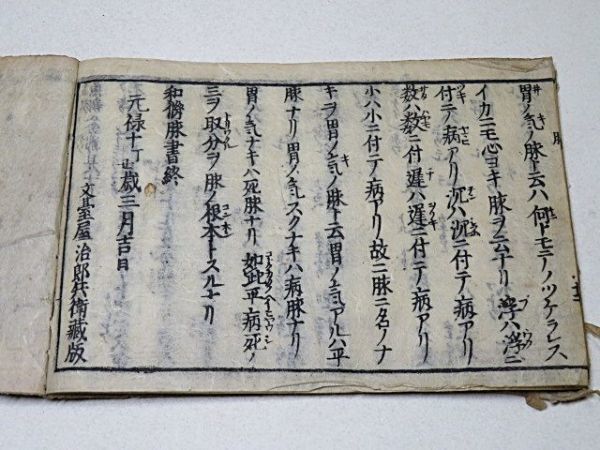 胃ノ気ノ脉ト云ハ何トモ名ノツケラレス
イカニモ心ヨキ脉ヲ云ナリ浮ハ浮ニ
付テ病アリ沉ハ沉ニ付テ病アリ
数ハ数ニ付遲ハ遲ニ付テノ病アリ
小ハ小ニ付テ病アリ故ニ脉ニ名ノナ
キヲ胃ノ気ノ脉ト云胃ノ気アルハ平
脉ナリ胃ノ気スクナキハ病脉ナリ
胃ノ気ナキハ死脉ナリ如此平病死ノ
三ヲ取分ヲ脉ノ根本トスルナリ
和樒脉書終
元禄十丁丑歳三月吉日
文臺屋治郎兵衛藏版